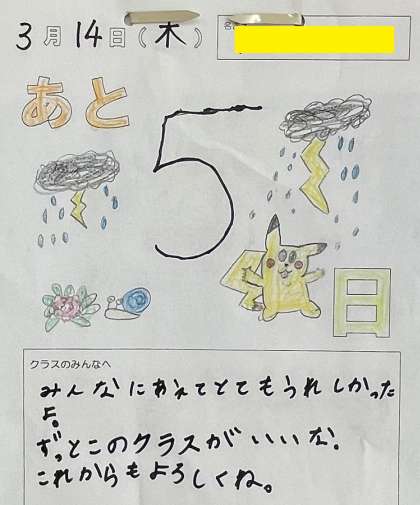 3月14日(木)
あと
5
日
クラスのみんなへ
みんなにあえてとてもうれしかった
よ。
ずっとこのクラスがいいな。
これからもよろしくね。